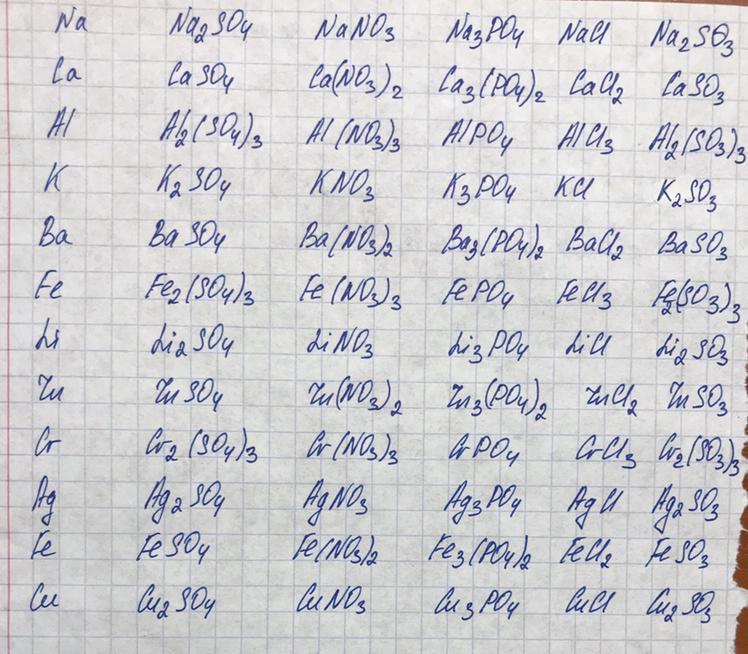 Na Na₂SO₄ NaNO₃ Na₃PO₄ NaCl Na₂SO₃
Ca CaSO₄ Ca(NO₃)₂ Ca₃(PO₄)₂ CaCl₂ CaSO₃
Al Al₂(SO₄)₃ Al(NO₃)₃ AlPO₄ AlCl₃ Al₂(SO₃)₃
K K₂SO₄ KNO₃ K₃PO₄ KCl K₂SO₃
Ba BaSO₄ Ba(NO₃)₂ Ba₃(PO₄)₂ BaCl₂ BaSO₃
Fe Fe₂(SO₄)₃ Fe(NO₃)₃ FePO₄ FeCl₃ Fe₂(SO₃)₃
Li Li₂SO₄ LiNO₃ Li₃PO₄ LiCl Li₂SO₃
Zn ZnSO₄ Zn(NO₃)₂ Zn₃(PO₄)₂ ZnCl₂ ZnSO₃
Cr Cr₂(SO₄)₃ Cr(NO₃)₃ CrPO₄ CrCl₃ Cr₂(SO₃)₃
Ag Ag₂SO₄ AgNO₃ Ag₃PO₄ AgCl Ag₂SO₃
Fe FeSO₄ Fe(NO₃)₂ Fe₃(PO₄)₂ FeCl₂ FeSO₃
Cu Cu₂SO₄ CuNO₃ Cu₃PO₄ CuCl Cu₂SO₃